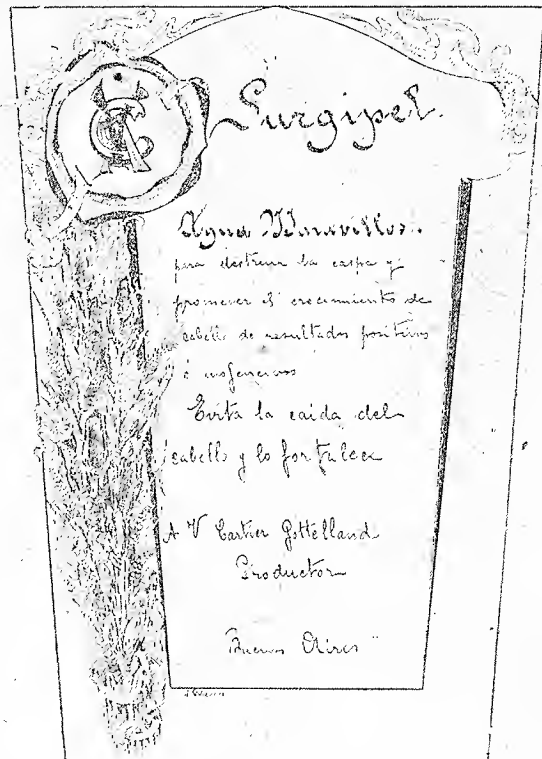 Surgipel
Agua Maravillosa
para destruir la caspa y
promover el crecimiento de
cabello de resultados positivos
é inofensivos
Evita la caida del
cabello y lo fortalece
A V Cartier Gottelland
Productor
Buenos Aires